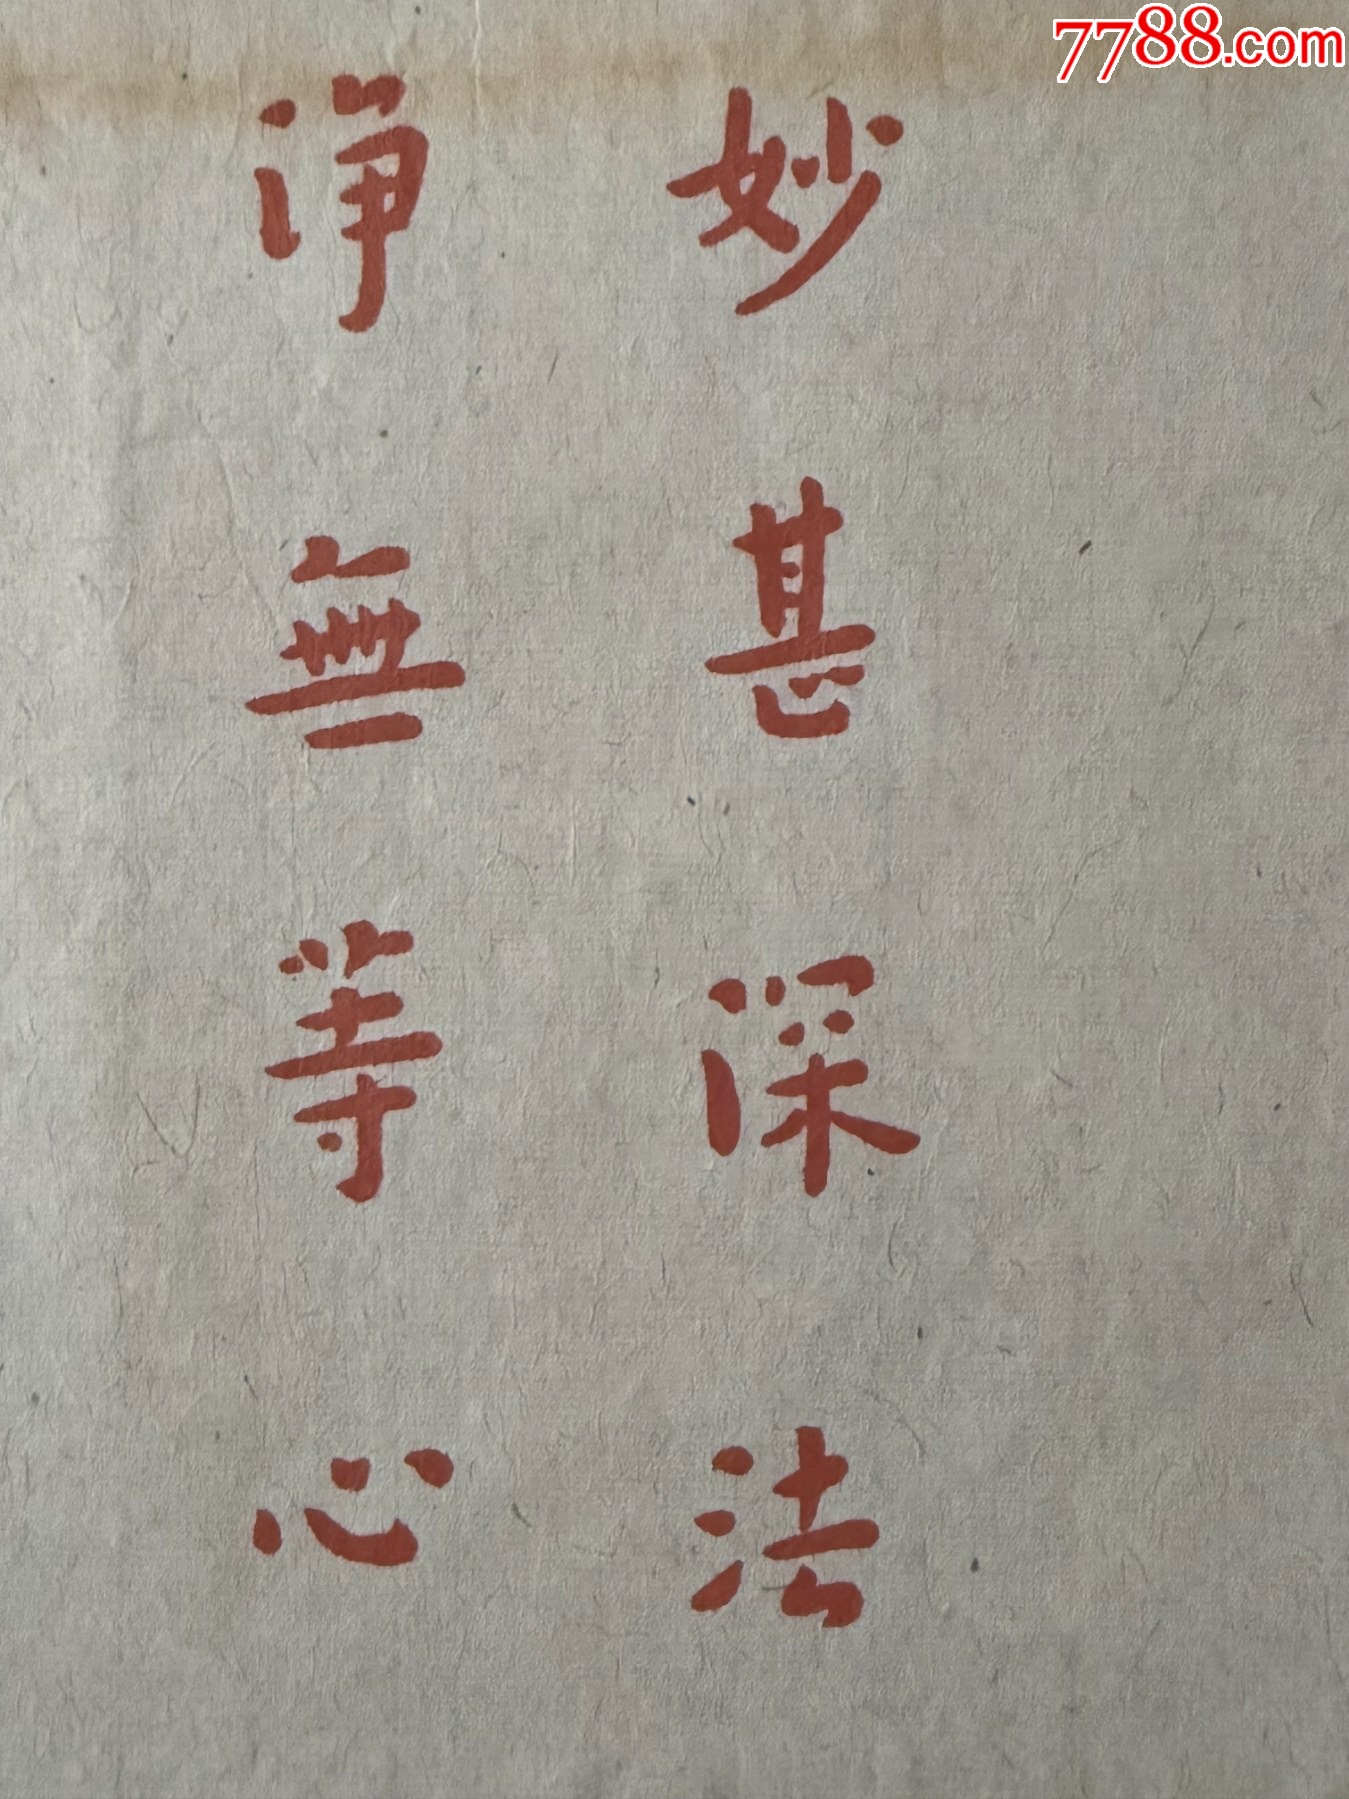 7788.com
妙甚深法
淨無等心